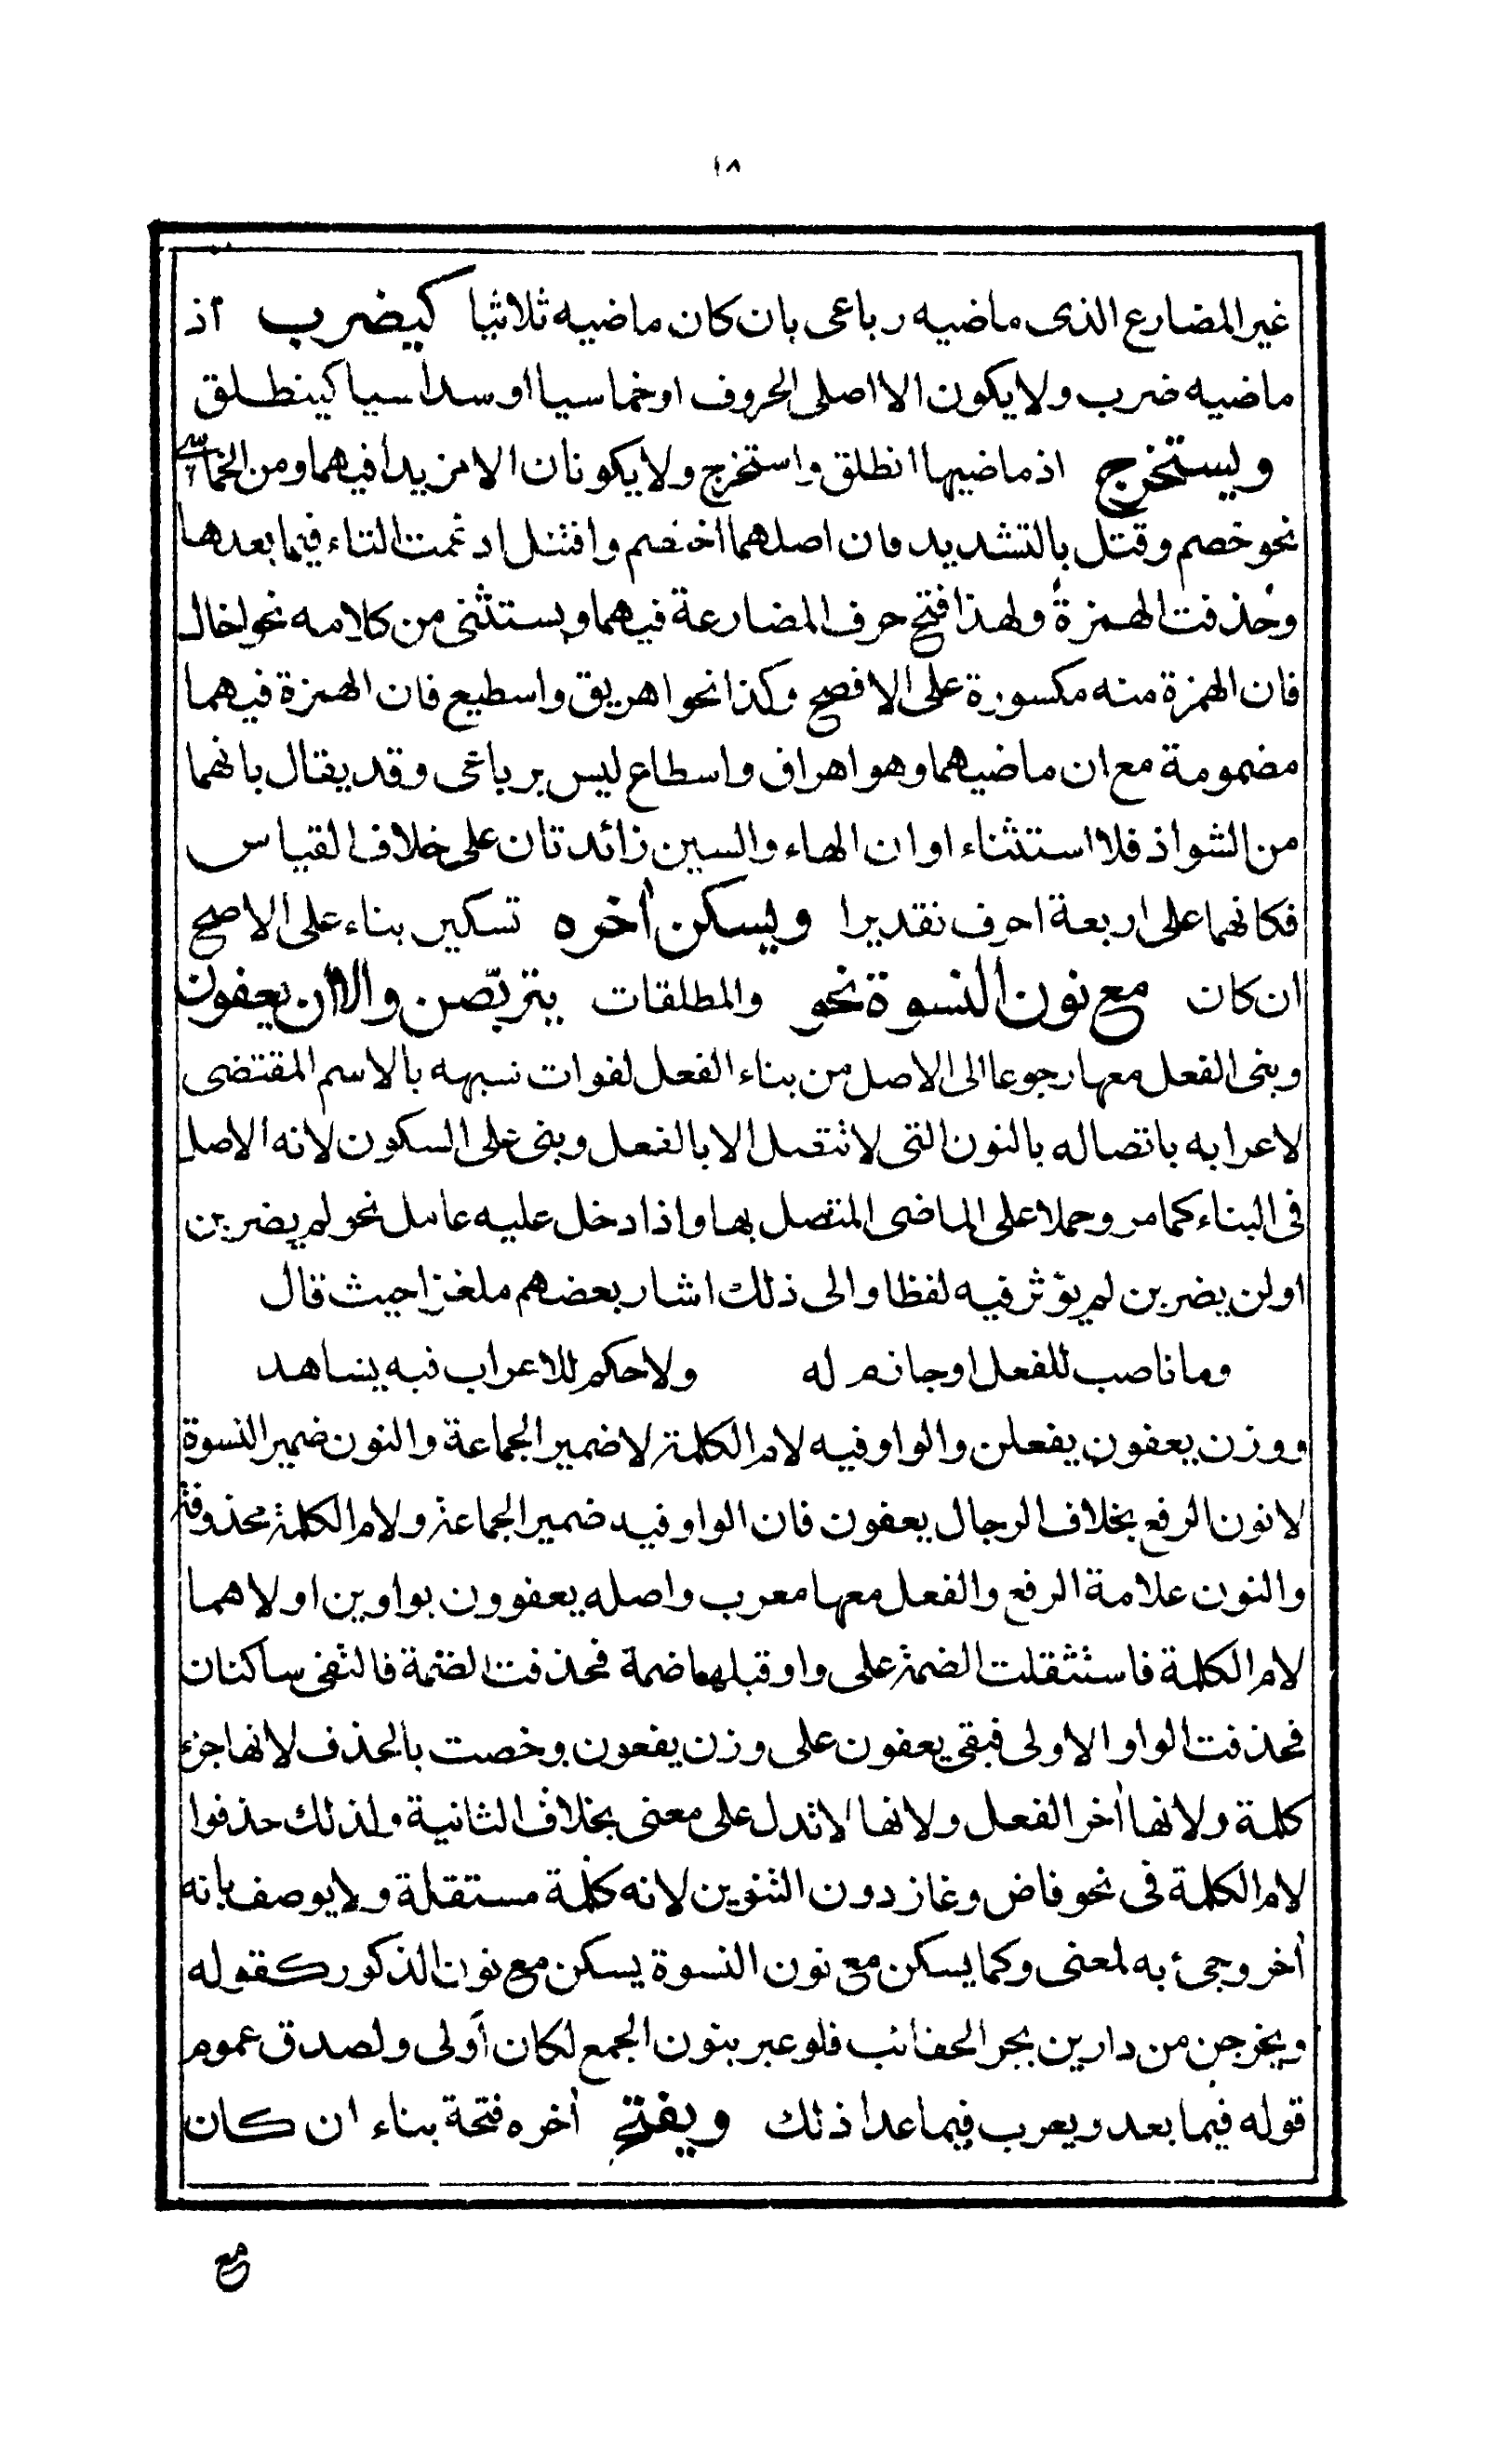 ١٨
غير المضارع الذى ماضيه رباعى بان كان ماضيه ثلاثيا كيضرب اذ
ماضيه ضرب ولا يكون الا اصلى الحروف او خماسيا او سداسيا كينطلق
ويستخرج اذ ماضيهما انطلق واستخرج ولا يكونان الا مزيدا فيهما ومن الخماسى
نحو خصم وقتل بالتشديد فان اصلهما اختصم واقتتل ادغمت التاء فيما بعدها
وحذفت الهمزة ولهذا فتح حرف المضارعة فيهما ويستثنى من كلامه نحو اخال
فان الهمزة منه مكسورة على الافصح وكذا نحو اهريق واسطيع فان الهمزة فيهما
مضمومة مع ان ماضيهما وهو اهراق واسطاع ليس برباعى وقد يقال بانهما
من الشواذ فلا استثناء او ان الهاء والسين زائدتان على خلاف القياس
فكانهما على اربعة احرف تقديرا ويسكن أخره تسكين بناء على الاصح
ان كان مع نون النسوة نحو والمطلقات يتربّصن والا ان يعفون
وبنى الفعل معها رجوعا الى الاصل من بناء الفعل لفوات شبهه بالاسم المقتضى
لاعرابه باتصاله بالنون التى لا تتصل الا بالفعل وبنى على السكون لانه الاصل
فى البناء كما مر وحملا على الماضى المتصل بها واذا دخل عليه عامل نحو لم يضربن
او لن يضربن لم يؤثر فيه لفظا والى ذلك اشار بعضهم ملغزا حيث قال
وما ناصب للفعل او جازم له ولا حكم للاعراب فيه يشاهد
ووزن يعفون يفعلن والواو فيه لام الكلمة لا ضمير الجماعة والنون ضمير النسوة
لا نون الرفع بخلاف الرجال يعفون فان الواو فيه ضمير الجماعة ولام الكلمة محذوفة
والنون علامة الرفع والفعل معها معرب واصله يعفوون بواوين اولاهما
لام الكلمة فاستثقلت الضمة على واو قبلها ضمة فحذفت الضمة فالتقى ساكنان
فحذفت الواو الاولى فبقى يعفون على وزن يفعون وخصت بالحذف لانها جزء
كلمة ولانها أخر الفعل ولانها لا تدل على معنى بخلاف الثانية ولذلك حذفوا
لام الكلمة فى نحو قاض وغاز دون التنوين لانه كلمة مستقلة ولا يوصف بانه
أخر وجئ به لمعنى وكما يسكن مع نون النسوة يسكن مع نون الذكور كقوله
ويخرجن من دارين بجر الحقائب فلو عبر بنون الجمع لكان أولى ولصدق عموم
قوله فيما بعد ويعرب فيما عدا ذلك ويفتح أخره فتحة بناء ان كان
مع